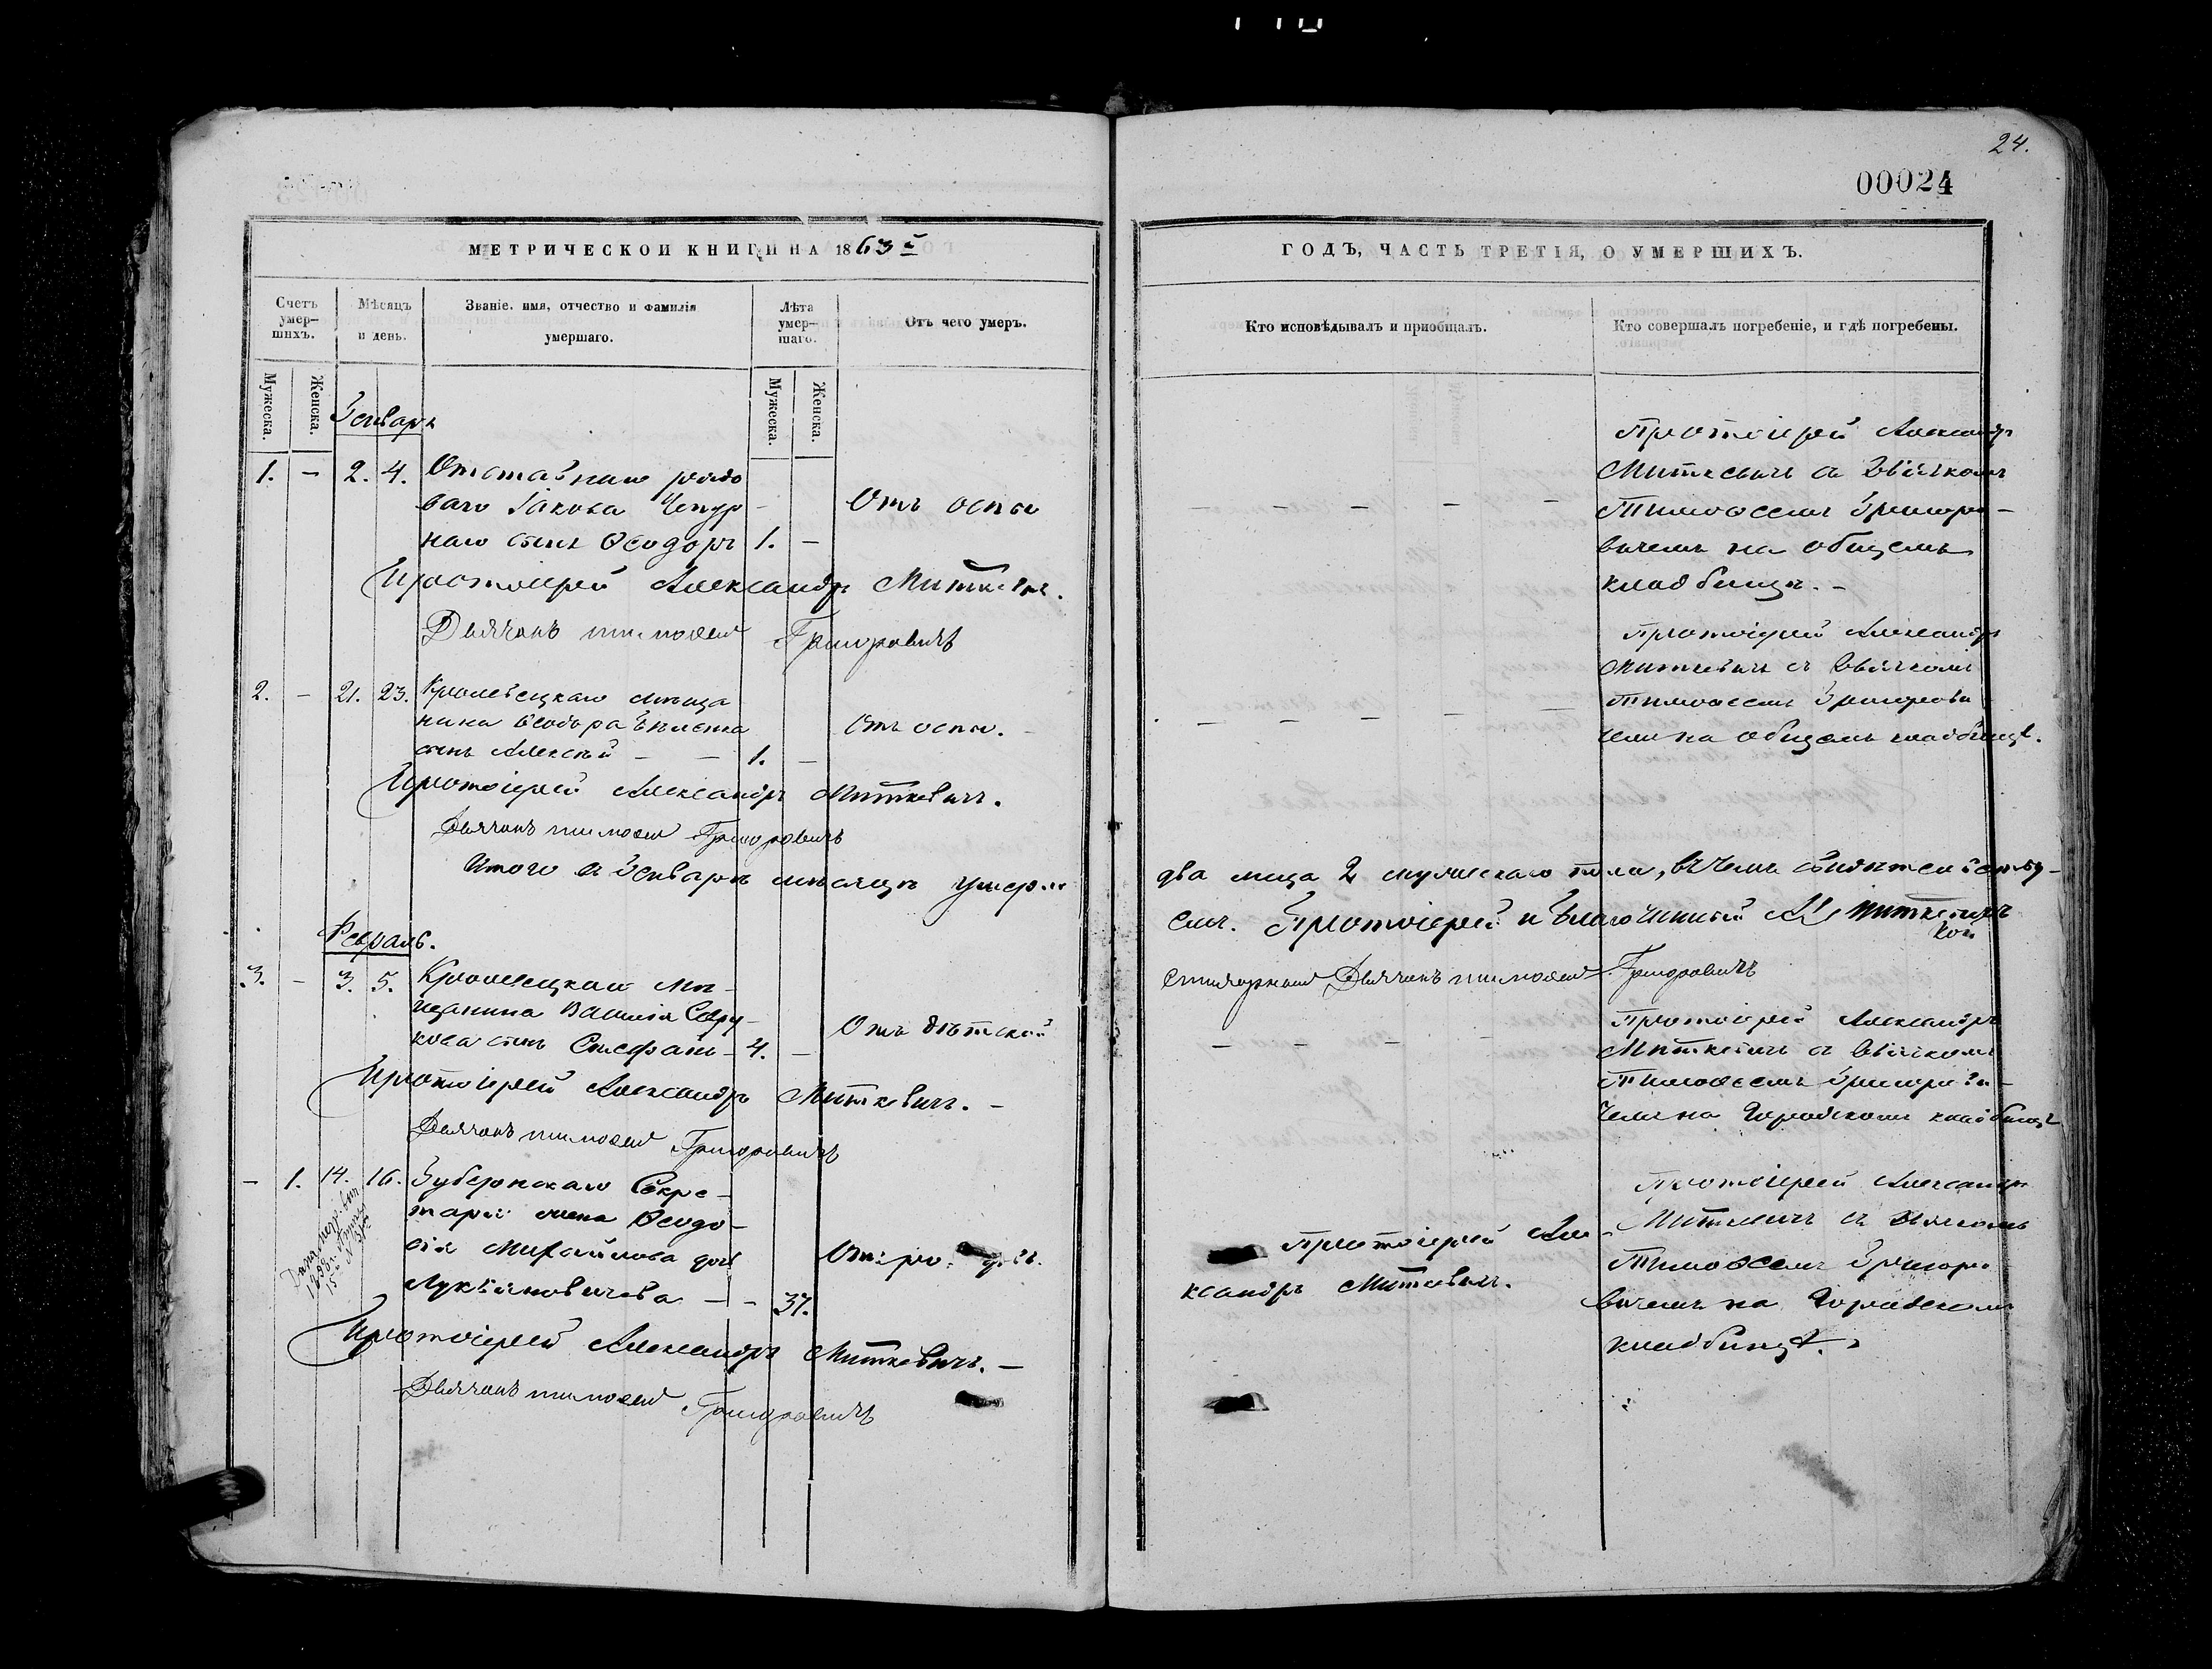 24.
00024
МЕТРИЧЕСКОЙ КНИГИ НА 1863й
ГОДЪ, ЧАСТЬ ТРЕТІЯ, О УМЕРШИХЪ.
Счетъ умер-шихъ.
Мѣсяцъ и день.
Званіе, имя, отчество и фамилія умершаго.
Лѣта умер-шаго.
Отъ чего умеръ.
Кто исповѣдывалъ и пріобщалъ.
Кто совершалъ погребеніе, и гдѣ погребены.
Мужеска.
Женска.
Мужеска.
Женска.
Генварь
1. - 2. 4. Отставнаго рядо
ваго Іакова Чепур-
наго сынъ Ѳеодоръ 1. -
Отъ оспы
Протоіерей Александръ
Миткевичъ съ Дьячкомъ
Тимоѳеемъ Григоро-
вичемъ на общемъ
кладбищѣ. -
Протоіерей Александръ Миткевичъ.
Дьячокъ Тимоѳей Григоровичъ
2. - 21. 23. Кролевецкаго мѣща
нина Ѳеодора
сынъ Алексѣй - - 1. -
Отъ оспы.
Протоіерей Александръ
Миткевичъ съ Дьячкомъ
Тимоѳеемъ Григорови
чемъ на общемъ кладбищѣ.
Протоіерей Александръ Миткевичъ.
Дьячокъ Тимоѳей Григоровичъ
Итого въ Генварѣ мѣсяцѣ умерло
два лица 2 мужескаго пола, въ чемъ свидѣтельству-
емъ. Протоіерей и Благочинный Миткевичъ
Дьячокъ Тимоѳей Григоровичъ
Февраль.
3. - 3. 5. Кролевецкаго мѣ-
щанина Василія
сынъ Стефанъ - 4. -
Отъ дѣтской
Протоіерей Александръ
Миткевичъ съ Дьячкомъ
Тимоѳеемъ Григорови-
чемъ на Городскомъ кладбищѣ
Протоіерей Александръ Миткевичъ. -
Дьячокъ Тимоѳей Григоровичъ
- 1. 14. 16. Губернскаго Секре-
таря жена Ѳеодо-
сія Михайлова
Лукіяновичева - - 37.
Протоіерей Але-
ксандръ Миткевичъ.
Протоіерей Александръ
Миткевичъ съ Дьячкомъ
Тимоѳеемъ Григоро
вичемъ на Городскомъ
кладбищѣ.
Протоіерей Александръ Миткевичъ. -
Дьячокъ Тимоѳей Григоровичъ